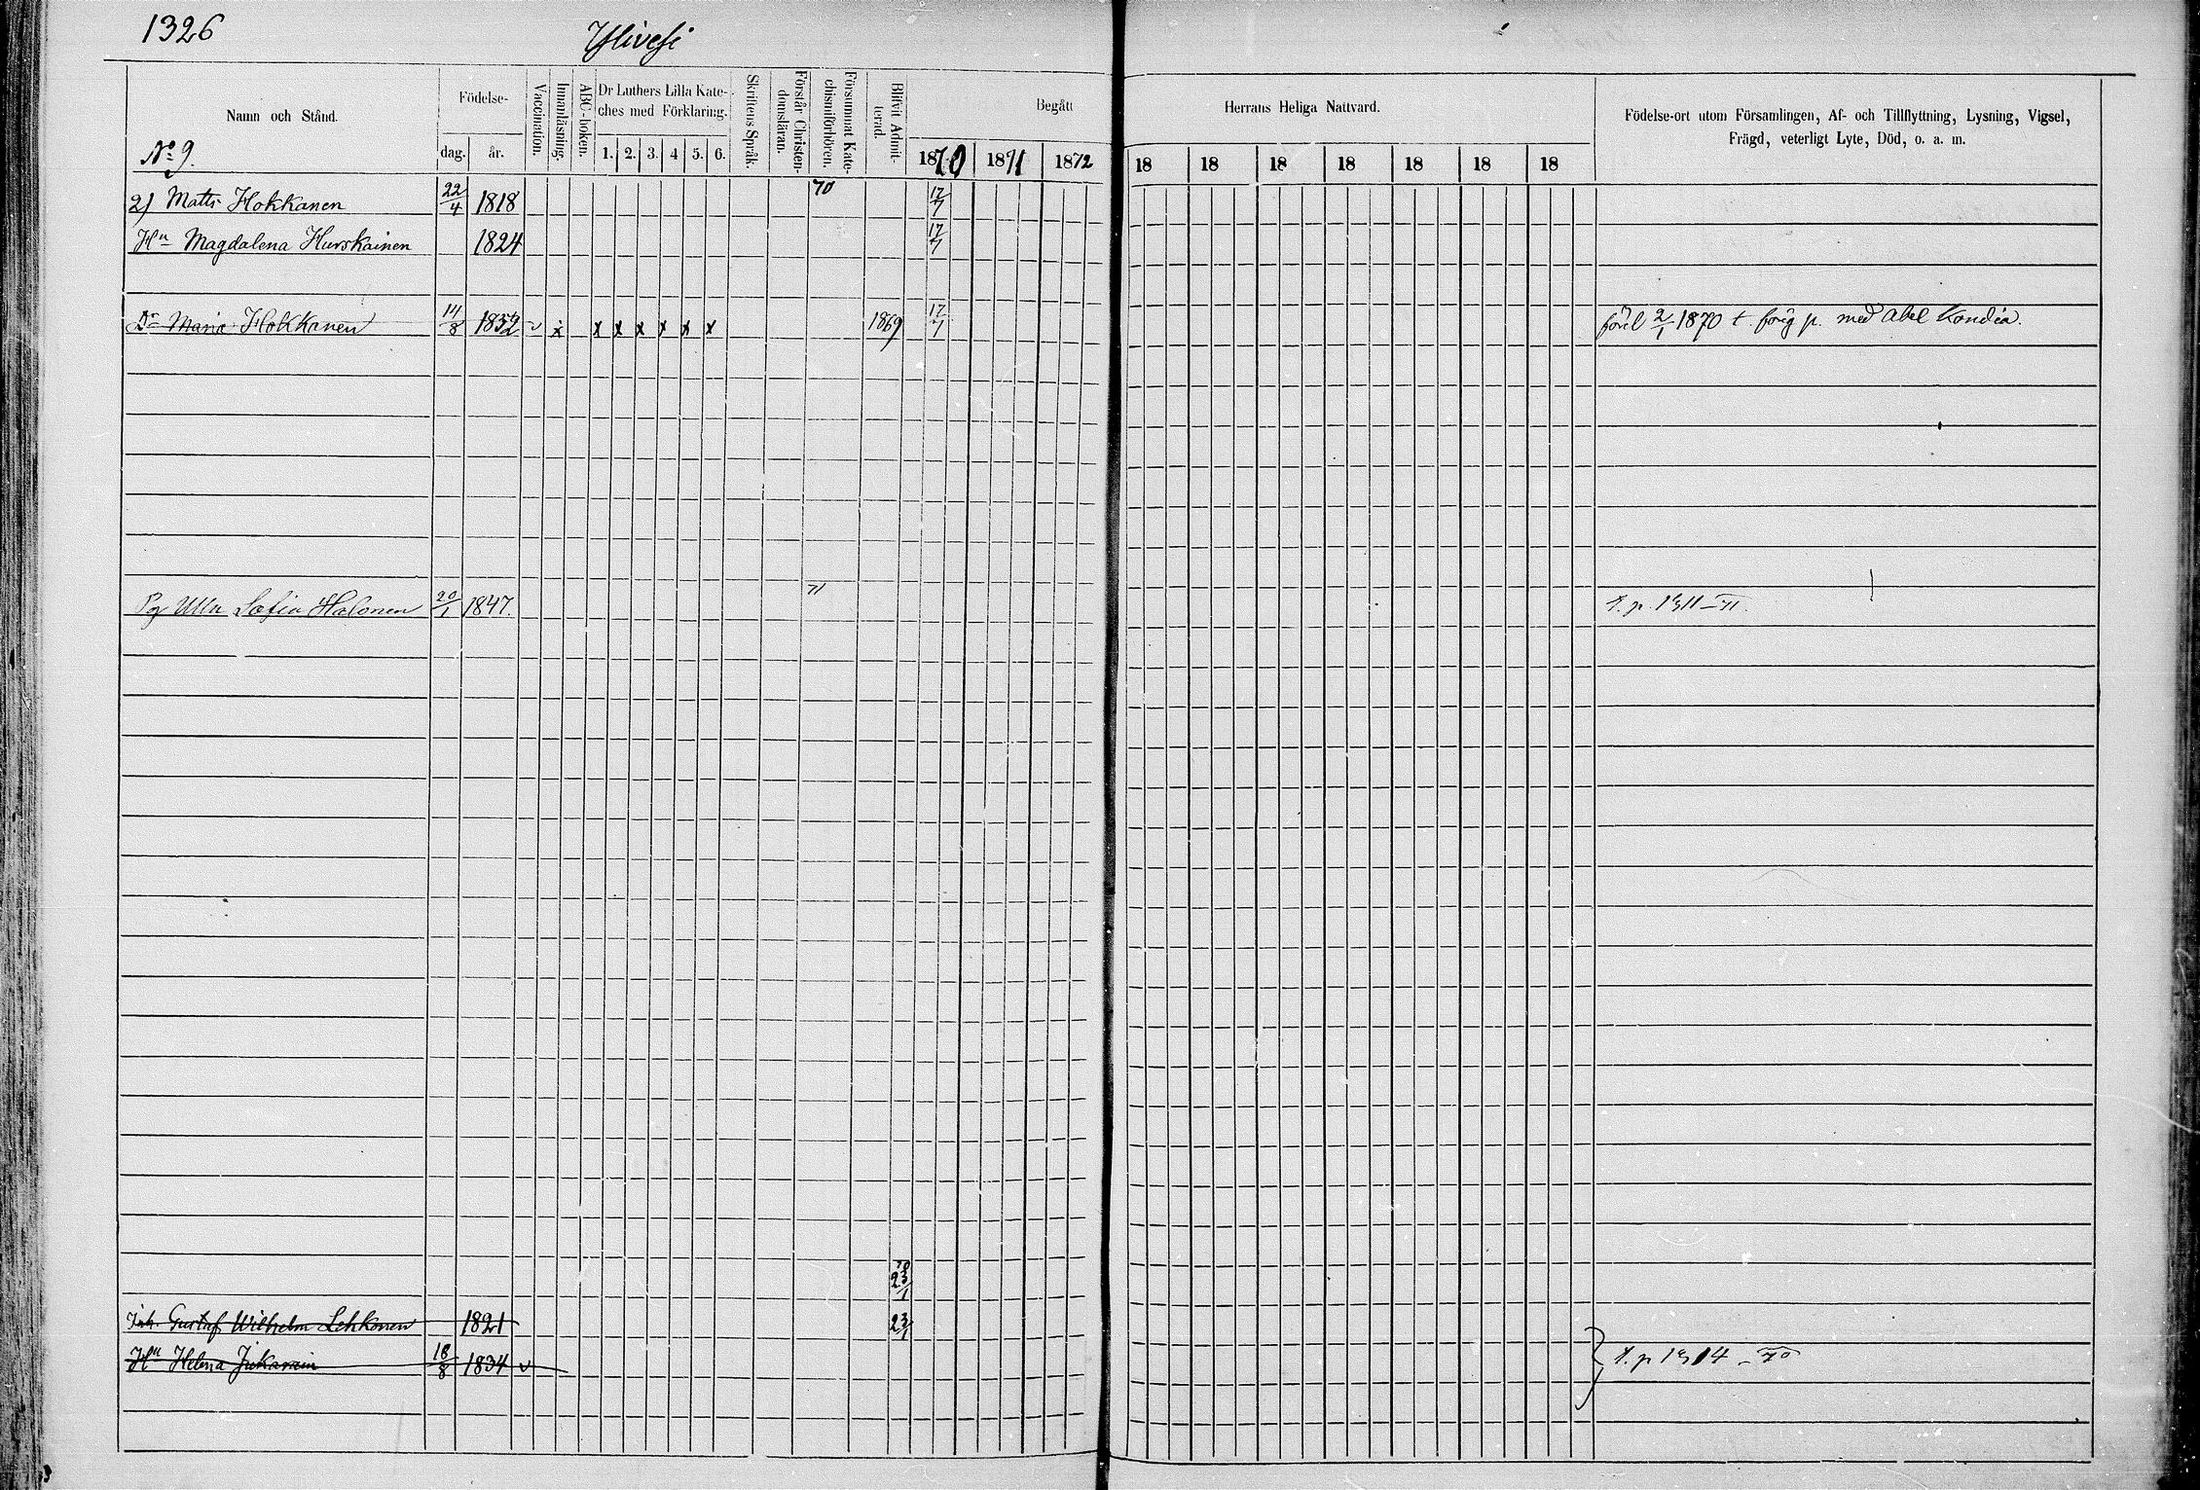 1326
Ylivesi
Namn och Stånd.
Födelse-
dag.
år.
Vaccination.
Innanläsning.
ABC-boken.
Dr Luthers Lilla Kate-
ches med Förklaring.
1. 2. 3. 4 5. 6.
Skriftens Språk.
Förstår Christen-
domsläran.
Försummat Kate-
chismiförhören.
Blifvit Admit-
terad.
Begått
Herrans Heliga Nattvard.
1870 1871 1872
18 18 18 18 18 18 18
Födelse-ort utom Församlingen, Af- och Tillflyttning, Lysning, Vigsel,
Frägd, veterligt Lyte, Död, o. a. m.
No 9.
2) Matts Hokkanen 22/4 1818 70 17/7
Hu Magdalena Hurskainen 1824 17/7
Dr Maria Hokkanen 14/8 1852 v x x x x x x x 1869 17/7 1870 t. förig p. med Abel Kondia.
Pg Ulla Sofia Halonen 20/1 1847. 71
70
23/1
Gustaf Wilhelm Lehkonen 1821 23/1
Hu Helena 18/8 1834 v